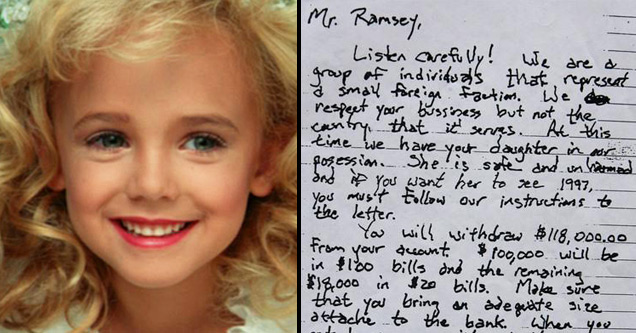 Mr. Ramsey,
Listen carefully! We are a
group of individuals that represent
a small foreign faction. We
respect your bussiness but not the
country that it serves. At this
time we have your daughter in our
posession. She is safe and unharmed
and if you want her to see 1997,
you must follow our instructions to
the letter.
You will withdraw $118,000.00
from your account. $100,000 will be
in $100 bills and the remaining
$18,000 in $20 bills. Make sure
that you bring an adequate size
attache to the bank. When you